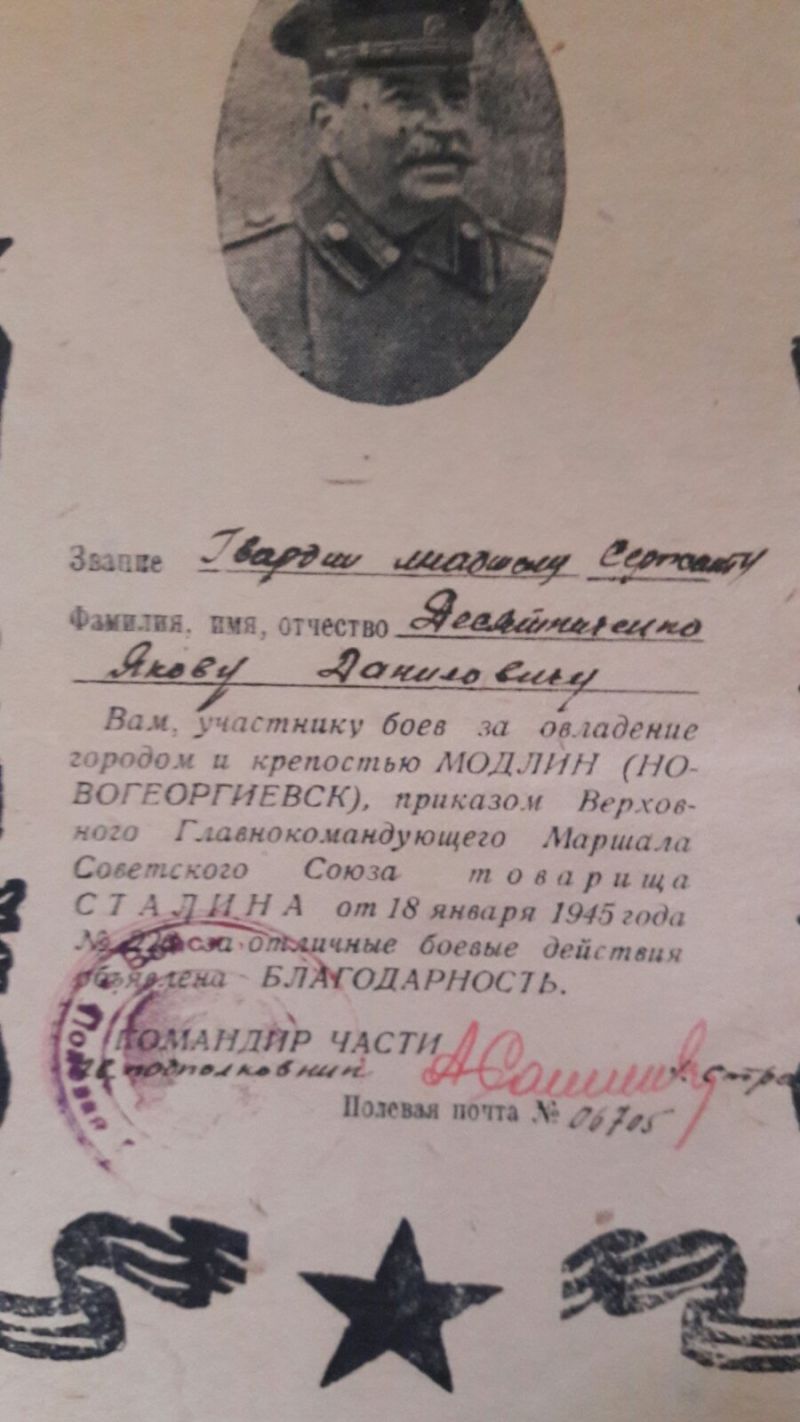 Звание Гвардии младшему Сержанту
Фамилия, имя, отчество Десятниченко
Якову Даниловичу
Вам, участнику боев за овладение
городом и крепостью МОДЛИН (НО-
ВОГЕОРГИЕВСК), приказом Верхов-
ного Главнокомандующего Маршала
Советского Союза товарища
СТАЛИНА от 18 января 1945 года
№ за отличные боевые действия
объявлена БЛАГОДАРНОСТЬ.
КОМАНДИР ЧАСТИ
подполковник
Полевая почта № 06705
Полевая